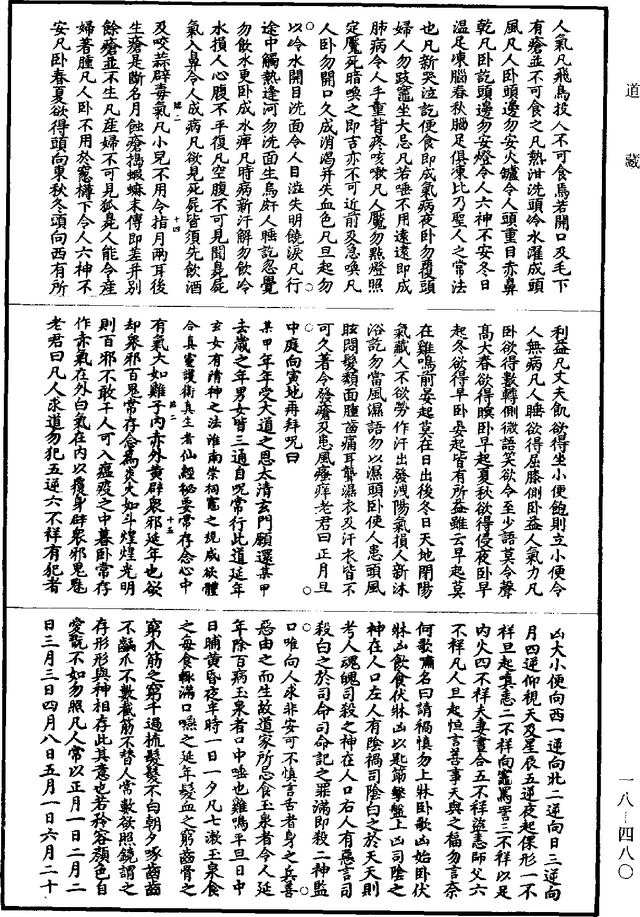 道藏
人氣凡飛鳥投人不可食鳥若開口及毛下
有瘡並不可食之凡熱泔洗頭冷水濯成頭
風凡人卧頭邊勿安火鑪令人頭重目赤鼻
乾凡卧訖頭邊勿安燈令人六神不安冬日
温足凍腦春秋腦足俱凍比乃聖人之常法
也凡新哭泣訖便食即成氣病夜卧勿覆頭
婦人勿跂竈坐大忌凡若唾不用遠遠即成
肺病令人手重背疼咳嗽凡人魘勿點燈照
定魘死暗喚之即吉亦不可近前及急喚凡
人卧勿開口久成消渴并失血色凡旦起勿
以冷水開目洗面令人目澁失明饒淚凡行
途中觸熱逢河勿洗面生烏皯人睡訖忽覺
勿飲水更卧成水痺凡時病新汗解勿飲冷
水損人心腹不平復凡空腹不可見聞臭屍
氣入鼻令人成病凡欲見死屍皆須先飲酒
及咬蒜辟毒氣凡小兒不用令指月兩耳後
臨二 十四
生瘡是斷名月蝕瘡搗蝦蟆末傅即差并別
餘瘡並不生凡産婦不可見狐臭人能令産
婦著腫凡人卧不用於窻欞下令人六神不
安凡卧春夏欲得頭向東秋冬頭向西有所
利益凡丈夫飢欲得坐小便飽則立小便令
人無病凡人睡欲得屈膝側卧益人氣力凡
卧欲得數轉側微語笑欲令至少語莫令聲
高大春欲得瞑卧早起夏秋欲得侵夜卧早
起冬欲得早卧晏起皆有所益雖云早起莫
在雞鳴前晏起莫在日出後冬日天地閉陽
氣藏人不欲勞作汗出發洩陽氣損人新沐
浴訖勿當風濕語勿以濕頭卧使人患頭風
眩悶髮頹面腫齒痛耳聾濕衣及汗衣皆不
可久著令發瘡及患風瘙痒老君曰正月旦
中庭向寅地再拜呪曰
某甲年年受大道之恩太清玄門願還某甲
去歲之年男女皆三通自呪常行此道延年
玄女有清神之法淮南崇祠竈之規咸欲體
合真靈護衛真生者仙經祕要常存念心中
有氣大如雞子内赤外黄辟衆邪延年也欲
臨二 十五
却衆邪百鬼常存念爲炎火如斗煌煌光明
則百邪不敢干人可入瘟疫之中暮卧常存
作赤氣在外白氣在内以覆身辟衆邪鬼魅
老君曰凡人求道勿犯五逆六不祥有犯者
凶大小便向西一逆向北二逆向日三逆向
月四逆仰視天及星辰五逆夜起倮形一不
祥旦起嗔恚二不祥向竈罵詈三不祥以足
内火四不祥夫妻晝合五不祥盜恚師父六
不祥凡人旦起恒言善事天與之福勿言奈
何歌嘯名曰請禍慎勿上牀卧歌凶始卧伏
牀凶飲食伏牀凶以匙筯擊盤上凶司陰之
神在人口左人有陰禍司陰白之於天天則
考人魂魄司殺之神在人口右人有惡言司
殺白之於司命司命記之罪滿即殺二神監
口唯向人求非安可不慎言舌者身之兵善
惡由之而生故道家所忌食玉泉者令人延
年除百病玉泉者口中唾也雞鳴平旦日中
日晡黄昏夜半時一日一夕凡七漱玉泉食
之每食輒滿口嚥之延年髮血之窮齒骨之
窮爪筋之窮千過梳髮髮不白朝夕啄齒齒
不齲爪不數截筋不替人常數欲照鏡謂之
存形形與神相存此其意也若矜容顏色自
愛翫不如勿照凡人常以正月一日二月二
日三月三日四月八日五月一日六月二十
一八-四八〇